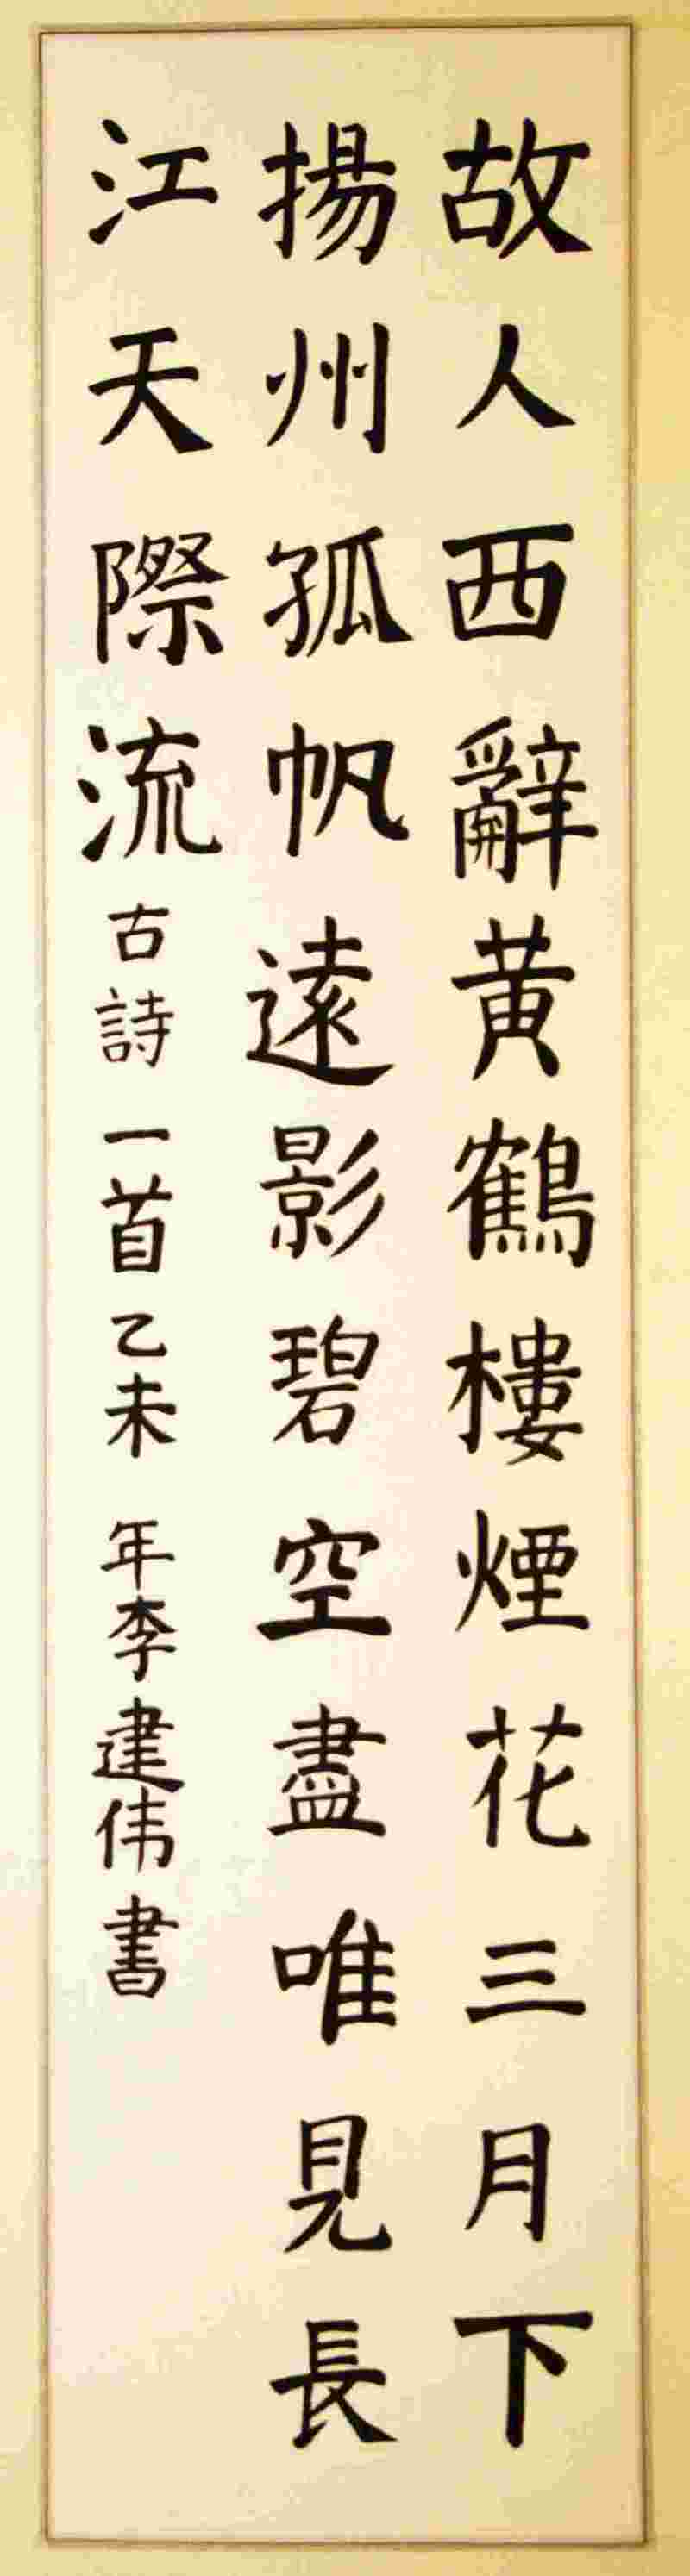 故人西辭黃鶴樓煙花三月下
揚州孤帆遠影碧空盡唯見長
江天際流古詩一首乙未年李建伟書